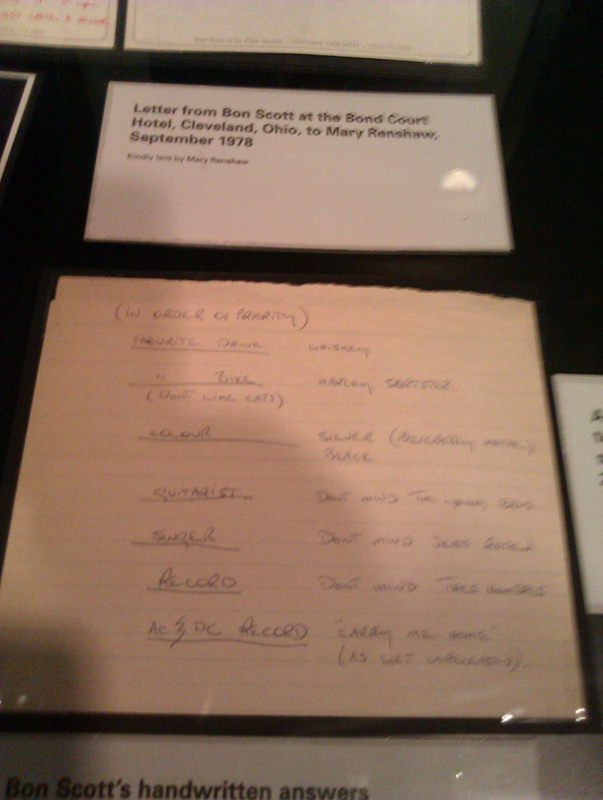 Letter from Bon Scott at the Bond Court
Hotel, Cleveland, Ohio, to Mary Renshaw,
September 1978
Kindly lent by Mary Renshaw
(IN ORDER OF PRIORITY)
FAVOURITE DRINK WHISKEY
" BIKE HARLEY
(DONT LIKE CARS)
COLOUR SILVER
BLACK
GUITARIST DONT MIND THE YOUNG
SINGER DONT MIND
RECORD DONT MIND
AC⚡DC RECORD "CARRY ME HOME"
(AS YET UNRELEASED).
Bon Scott's handwritten answers